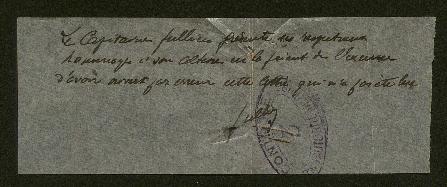 Le Capitaine présente ses respectueux
hommages à son Colonel en le priant de l'excuser
d'avoir ouvert par erreur cette lettre, qui n'a pas été lue
CONT